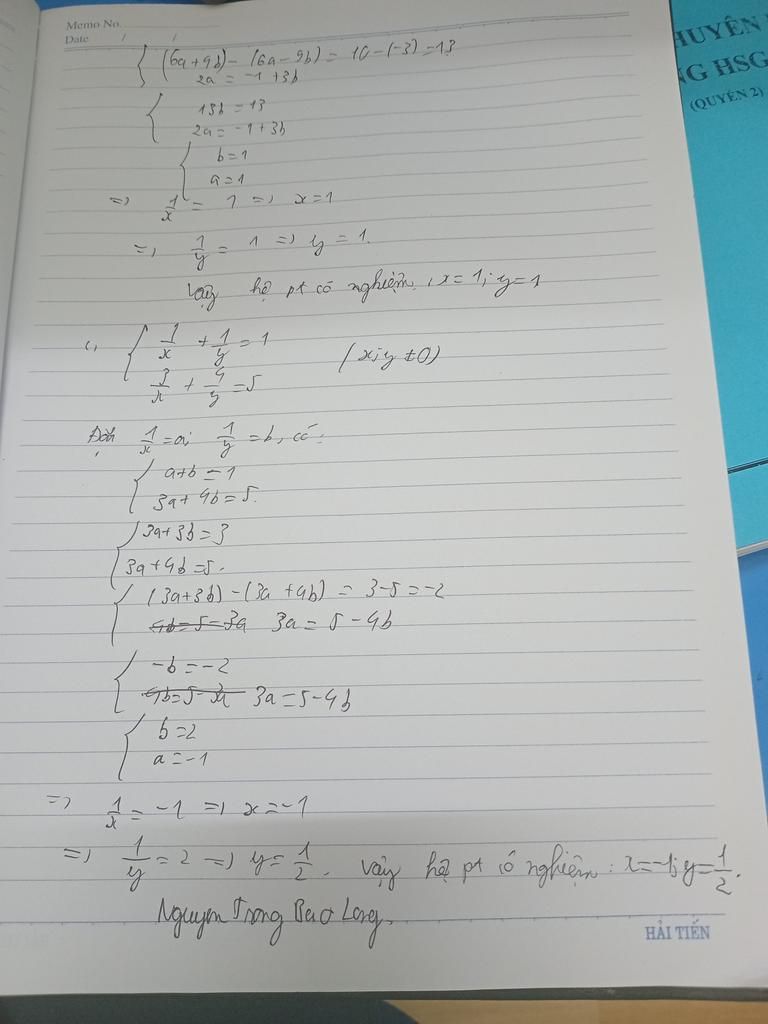 Memo No.
Date / /
(6a+4b) - (6a-9b) = 10-(-3)=13
2a = -1+3b
13b = 13
2a = -1+3b
b=1
a=1
=> 1/x = 1 => x=1
=> 1/y = 1 => y = 1.
Vậy hệ pt có nghiệm: x=1; y=1
c, 1/x + 1/y = 1
3/x + 4/y = 5 (x;y ≠0)
Đặt 1/x = a; 1/y = b, có:
a+b = 1
3a+4b=5.
3a+3b=3
3a+4b=5.
(3a+3b)-(3a+4b) = 3-5=-2
4b=5-3a 3a = 5-4b
-b=-2
4b=5-3a 3a=5-4b
b=2
a=-1
=> 1/x = -1 => x=-1
=> 1/y = 2 => y = 1/2. Vậy hệ pt có nghiệm: x=-1; y=1/2.
Nguyen Trong Bao Long.
HẢI TIẾN
HUYÊN
NG HSG
(QUYỂN 2)